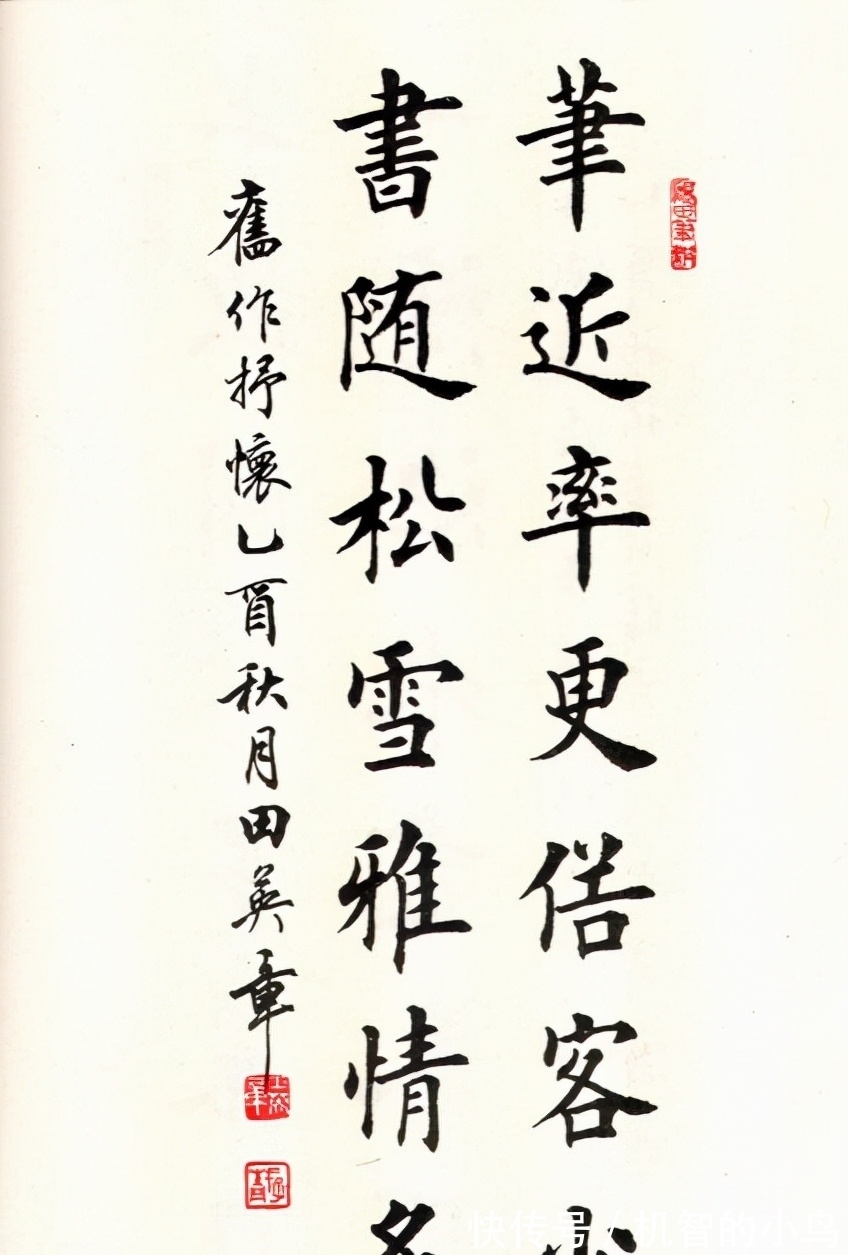 筆近率更俗客
書随松雪雅情
舊作抒懷乙酉秋月田英章
快传号 / 机智的小鸟